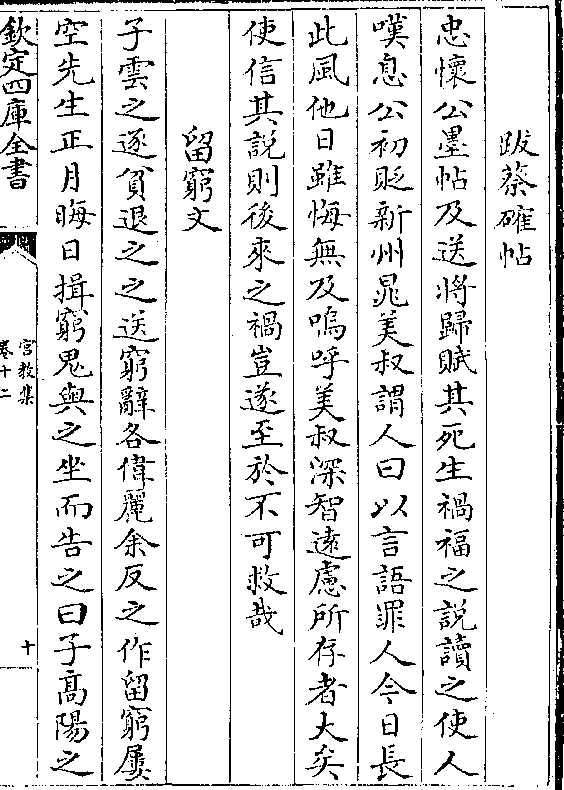 跋蔡確帖
忠懷公墨帖及送將歸賦其死生禍福之說讀之使人
嘆息公初貶新州晁美叔謂人曰以言語罪人今日長
此風他日雖悔無及嗚呼美叔深智遠慮所存者大矣
使信其說則後來之禍豈遂至於不可救哉
留窮文
子雲之逐貧退之之送窮辭各偉麗余反之作留窮屢
空先生正月晦日揖窮鬼與之坐而告之曰子高陽之
欽定四庫全書
宮教集
卷十二
十